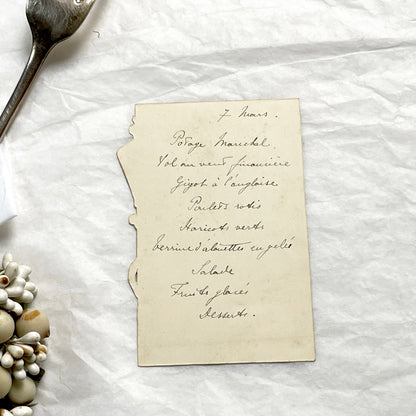 7 Mars.
Potage Marechal
Vol au vent financière
Gigot à l'anglaise
Poulets rotis
Haricots verts
Terrine d'alouettes en gelée
Salade
Fruits glacés
Desserts.